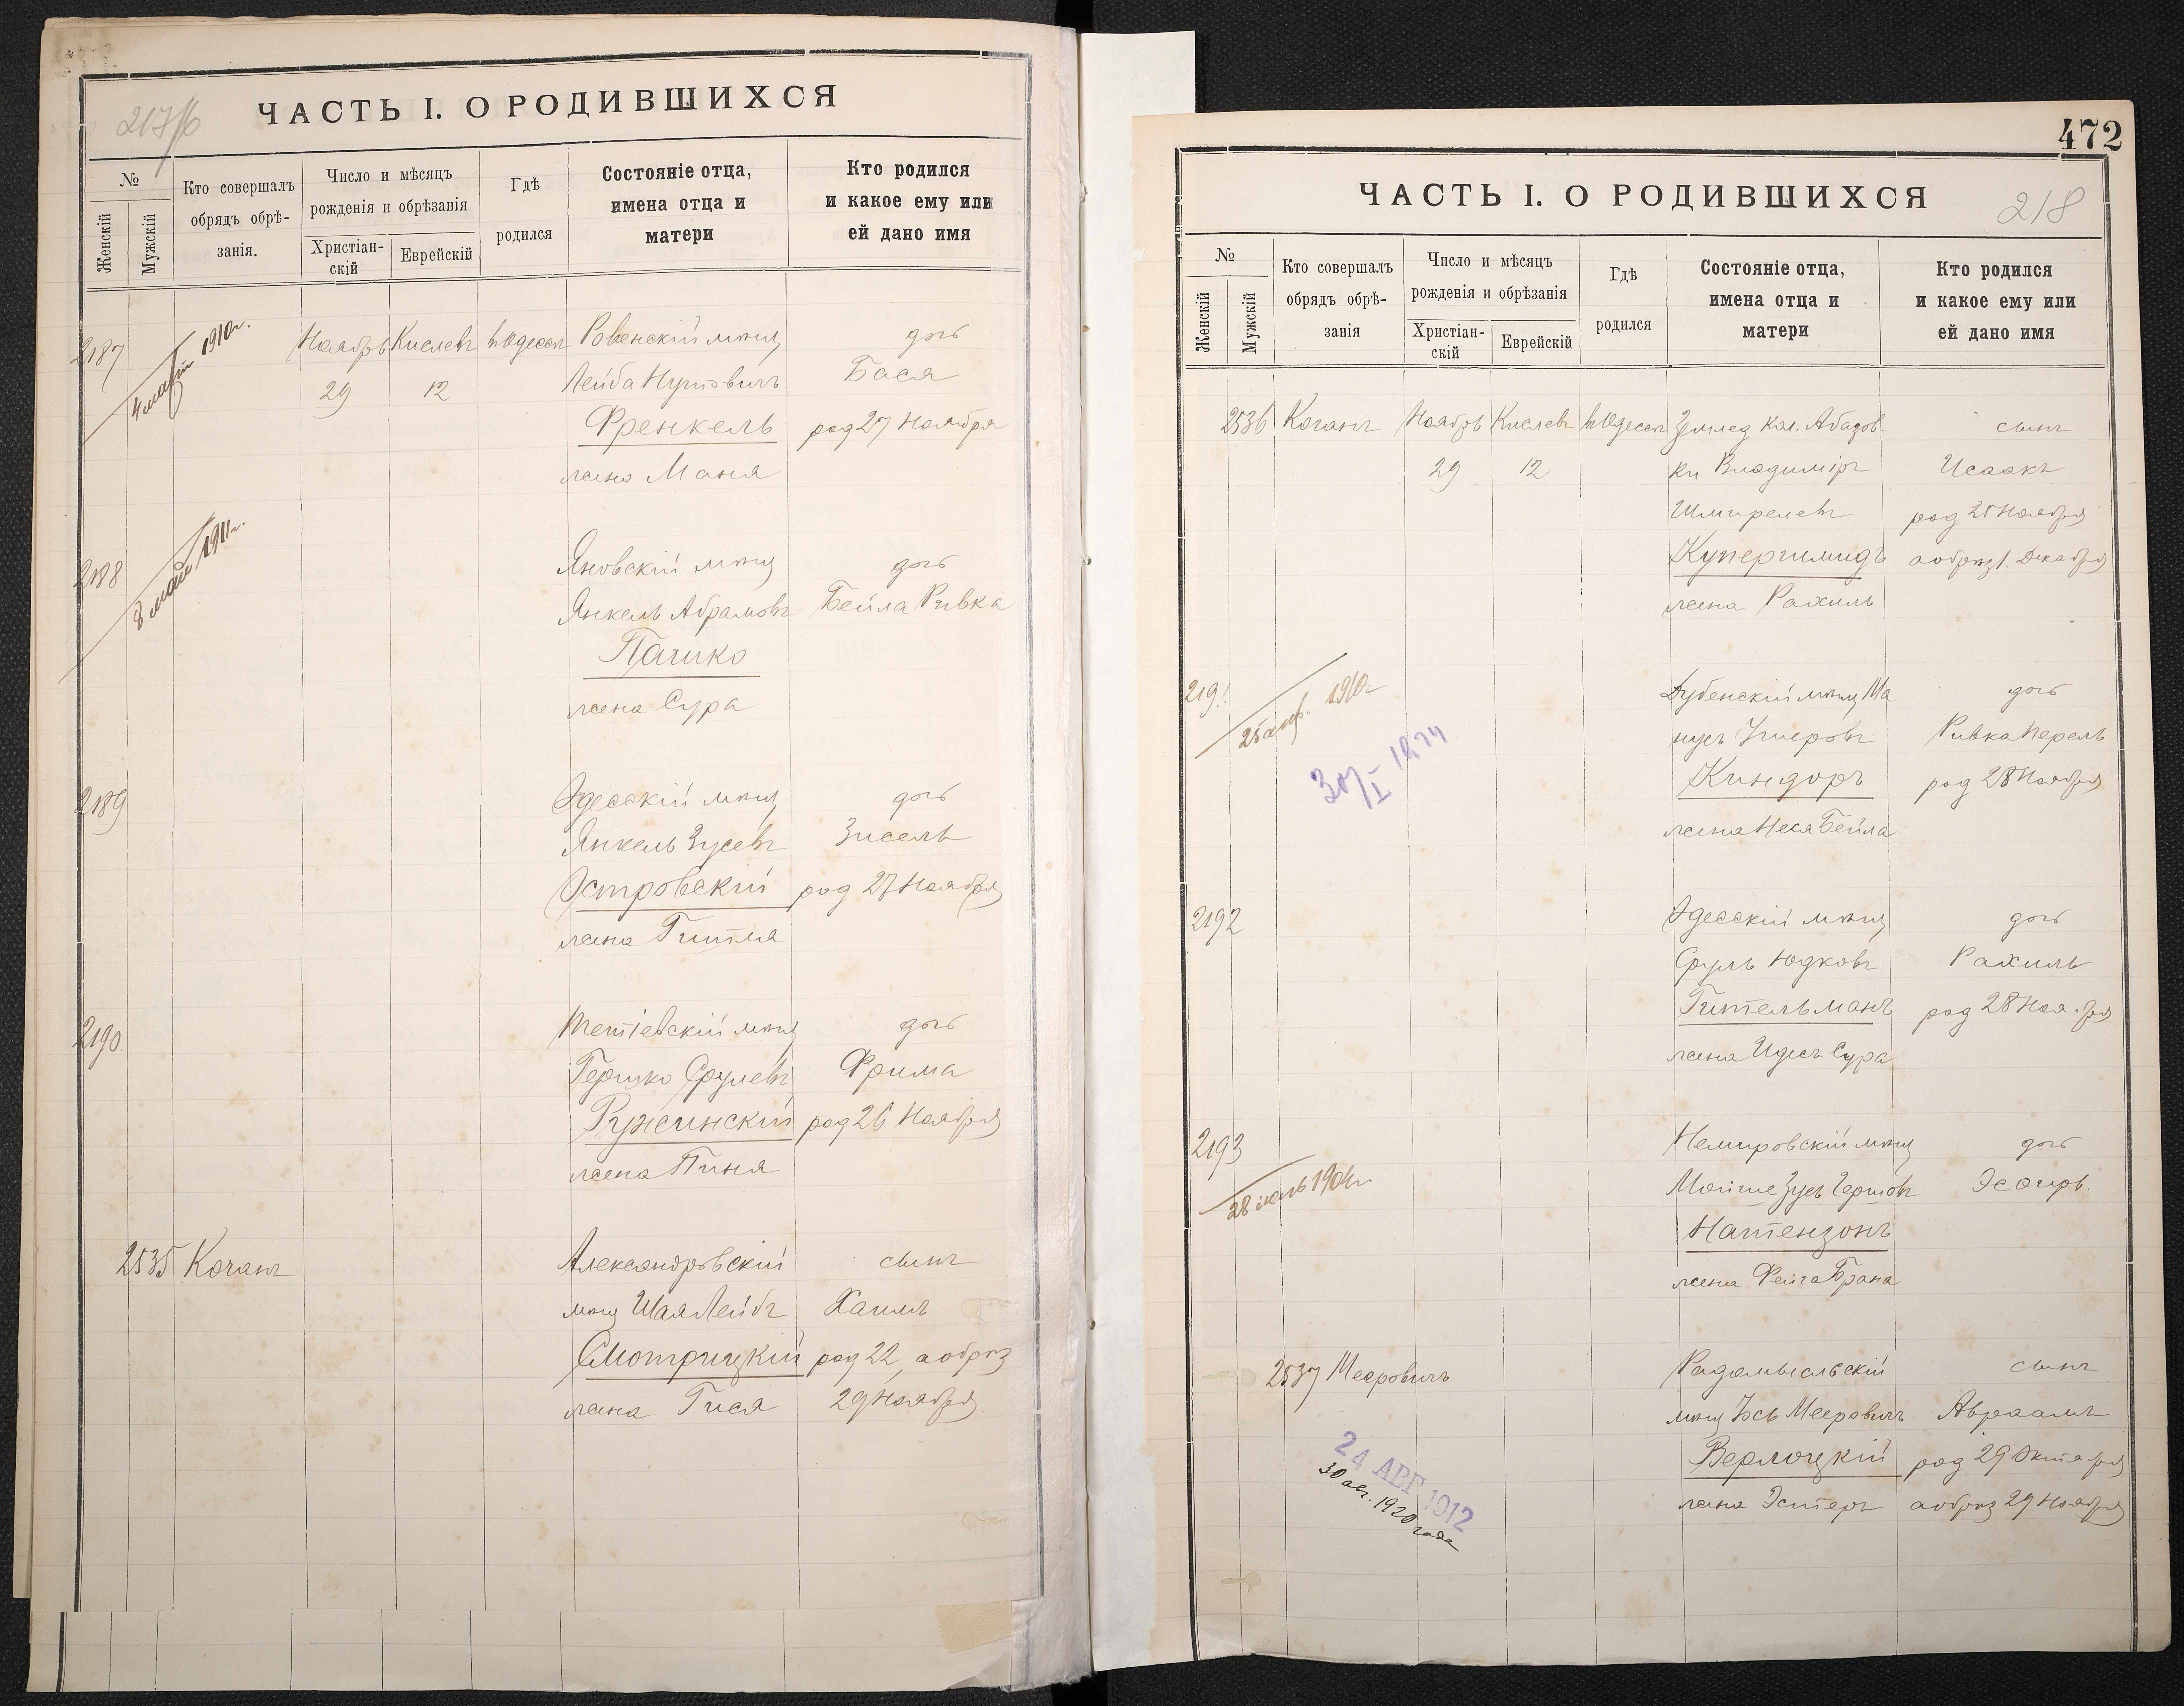 ЧАСТЬ I. О РОДИВШИХСЯ
№
Женскій
Мужскій
Кто совершалъ
обрядъ обрѣ-
занія.
Число и мѣсяцъ
рожденія и обрѣзанія
Христіан-
скій
Еврейскій
Гдѣ
родился
Состояніе отца,
имена отца и
матери
Кто родился
и какое ему или
ей дано имя
2187
4 март 1910г.
Ноябрь Кислевъ въ Одессѣ Ровенскій мѣщ дочь
29 12 Лейба Бася
Френкель род 27 Ноября
жена Маня
2188
8 май 1911г.
Яновскій мѣщ дочь
Янкель Абрамовъ Бейла Ривка
Пачико
жена Сура
2189 Одесскій мѣщ дочь
Янкель Зусевъ Зисель
Островскій род 27 Ноября
жена Гитля
2190. Тетіевскій мѣщ дочь
Гершко Срулевъ Фрима
Ружинскій род 26 Ноября
жена Пиня
2535 Коганъ Александровскій сынъ
мѣщ Шая Лейбъ Хаимъ
Смотрицкій род 22, а обрѣз
жена Гися 29 Ноября
472
ЧАСТЬ I. О РОДИВШИХСЯ
218
№
Женскій
Мужскій
Кто совершалъ
обрядъ обрѣ-
занія
Число и мѣсяцъ
рожденія и обрѣзанія
Христіан-
скій
Еврейскій
Гдѣ
родился
Состояніе отца,
имена отца и
матери
Кто родился
и какое ему или
ей дано имя
2536 Коганъ Ноябрь Кислевъ въ Одессѣ Землед кол. Абазов- сынъ
29 12 ки Владиміръ Исаакъ
Шмирелевъ род Ноября
Купершмидъ а обрѣз 1. Декабря
жена Рахиль
2191 Дубенскій мѣщ Ма дочь
1910г
нусъ Ривка Перель
Киндоръ род 28 Ноября
жена Неся Бейла
2192 Одесскій мѣщ дочь
Сруль Юдковъ Рахиль
Гительманъ род 28 Ноября
жена Идесъ Сура
2193 Немировскій мѣщ дочь
28 1904г
Мойше Зусь Гершовъ Эсѳирь.
Натензонъ
жена Фейга Брана
2537 Мееровичъ Радомысльскій сынъ
мѣщ Іось Мееровичъ Авраамъ
Верлоцкій род 29 Октября
жена Эстеръ а обрѣз 29 Ноября
24 АВГ 1912
30 авг. 1920 года